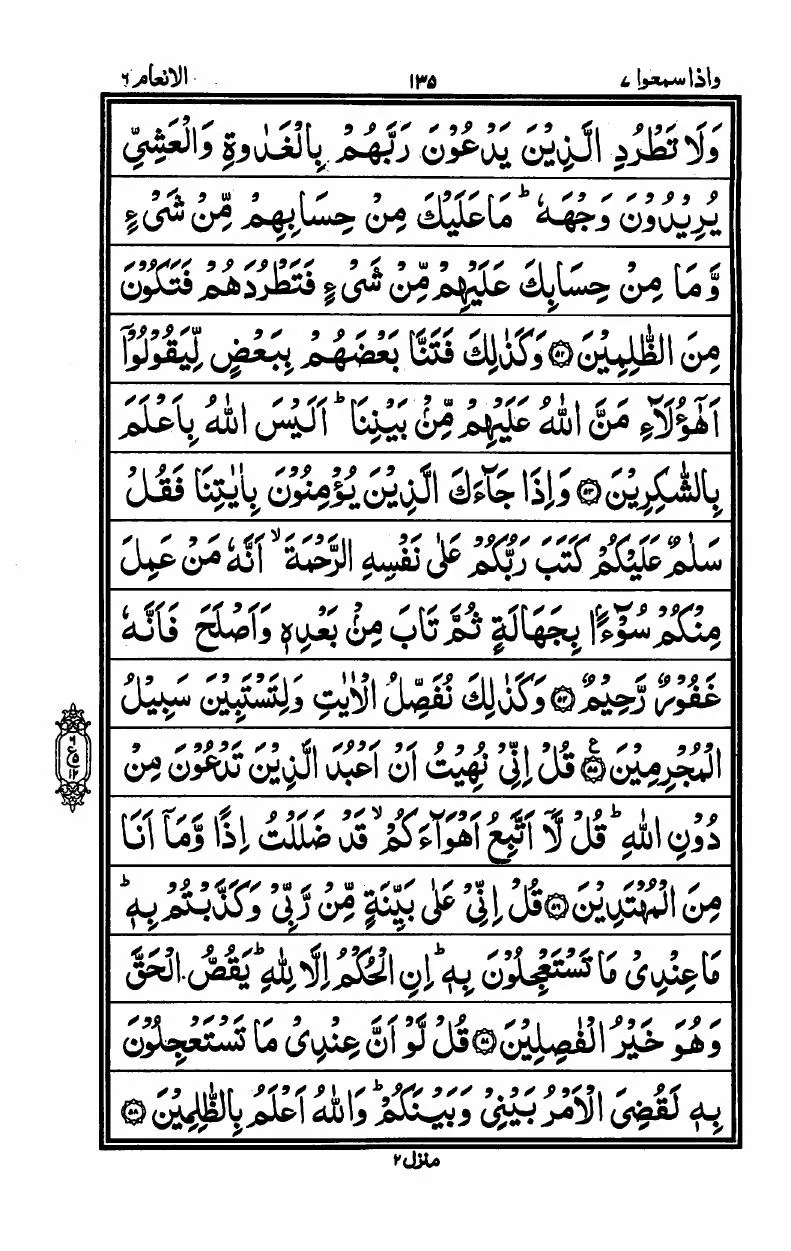 واذا سمعوا ٧ ١٣٥ الانعام ٦
وَلَا تَطْرُدِ الَّذِیْنَ یَدْعُوْنَ رَبَّهُمْ بِالْغَدٰوةِ وَالْعَشِیِّ
یُرِیْدُوْنَ وَجْهَهٗ ؕ مَا عَلَیْكَ مِنْ حِسَابِهِمْ مِّنْ شَیْءٍ
وَّمَا مِنْ حِسَابِكَ عَلَیْهِمْ مِّنْ شَیْءٍ فَتَطْرُدَهُمْ فَتَكُوْنَ
مِنَ الظّٰلِمِیْنَ ۝٥٢ وَكَذٰلِكَ فَتَنَّا بَعْضَهُمْ بِبَعْضٍ لِّیَقُوْلُوْۤا
اَهٰۤؤُلَآءِ مَنَّ اللّٰهُ عَلَیْهِمْ مِّنْۢ بَیْنِنَا ؕ اَلَیْسَ اللّٰهُ بِاَعْلَمَ
بِالشّٰكِرِیْنَ ۝٥٣ وَاِذَا جَآءَكَ الَّذِیْنَ یُؤْمِنُوْنَ بِاٰیٰتِنَا فَقُلْ
سَلٰمٌ عَلَیْكُمْ كَتَبَ رَبُّكُمْ عَلٰی نَفْسِهِ الرَّحْمَةَ ۙ اَنَّهٗ مَنْ عَمِلَ
مِنْكُمْ سُوْٓءًۢا بِجَهَالَةٍ ثُمَّ تَابَ مِنْۢ بَعْدِهٖ وَاَصْلَحَ فَاَنَّهٗ
غَفُوْرٌ رَّحِیْمٌ ۝٥٤ وَكَذٰلِكَ نُفَصِّلُ الْاٰیٰتِ وَلِتَسْتَبِیْنَ سَبِیْلُ
الْمُجْرِمِیْنَ ۝٥٥ ع قُلْ اِنِّیْ نُهِیْتُ اَنْ اَعْبُدَ الَّذِیْنَ تَدْعُوْنَ مِنْ
٦ ع ٥ ١٢
دُوْنِ اللّٰهِ ؕ قُلْ لَّاۤ اَتَّبِعُ اَهْوَآءَكُمْ ۙ قَدْ ضَلَلْتُ اِذًا وَّمَاۤ اَنَا
مِنَ الْمُهْتَدِیْنَ ۝٥٦ قُلْ اِنِّیْ عَلٰی بَیِّنَةٍ مِّنْ رَّبِّیْ وَكَذَّبْتُمْ بِهٖ ؕ
مَا عِنْدِیْ مَا تَسْتَعْجِلُوْنَ بِهٖ ؕ اِنِ الْحُكْمُ اِلَّا لِلّٰهِ ؕ یَقُصُّ الْحَقَّ
وَهُوَ خَیْرُ الْفٰصِلِیْنَ ۝٥٧ قُلْ لَّوْ اَنَّ عِنْدِیْ مَا تَسْتَعْجِلُوْنَ
بِهٖ لَقُضِیَ الْاَمْرُ بَیْنِیْ وَبَیْنَكُمْ ؕ وَاللّٰهُ اَعْلَمُ بِالظّٰلِمِیْنَ ۝٥٨
منزل ٢